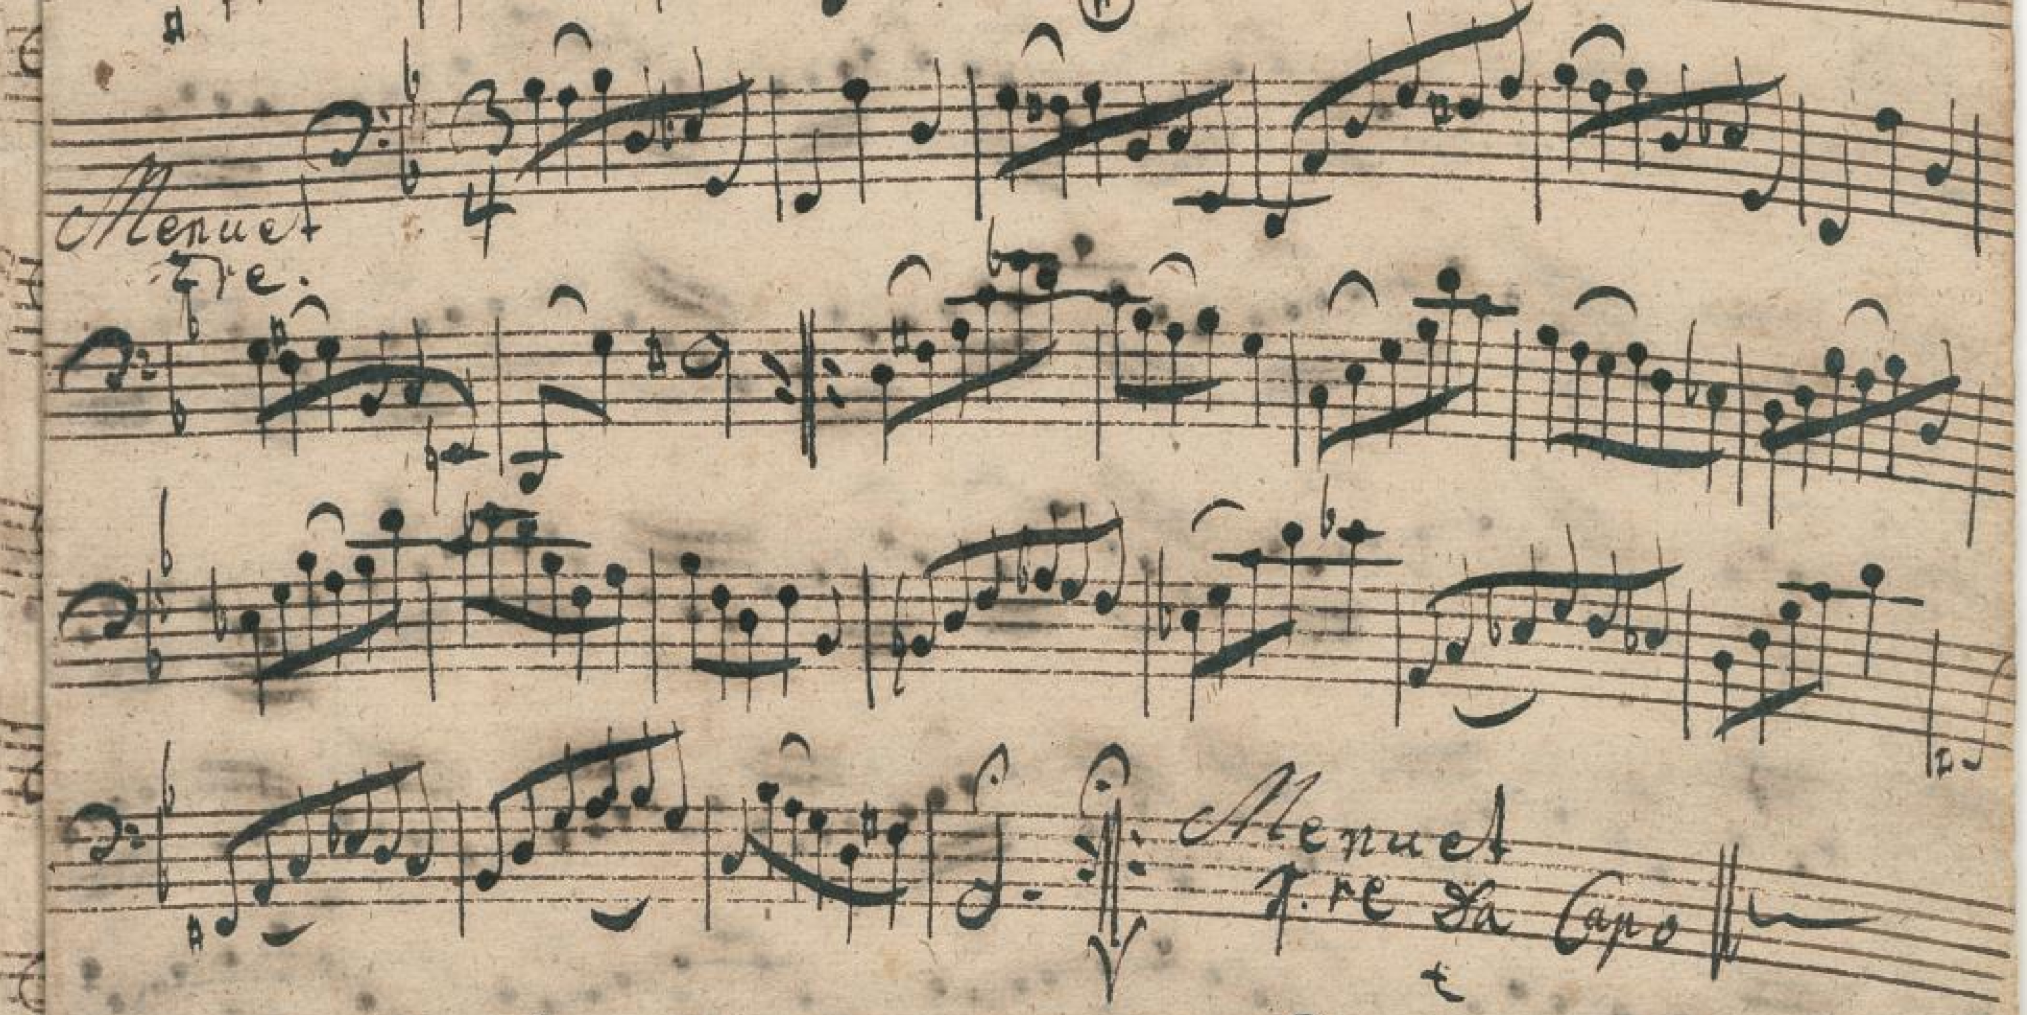 3
4
Menuet
2re.
Menuet
1.re Da Capo